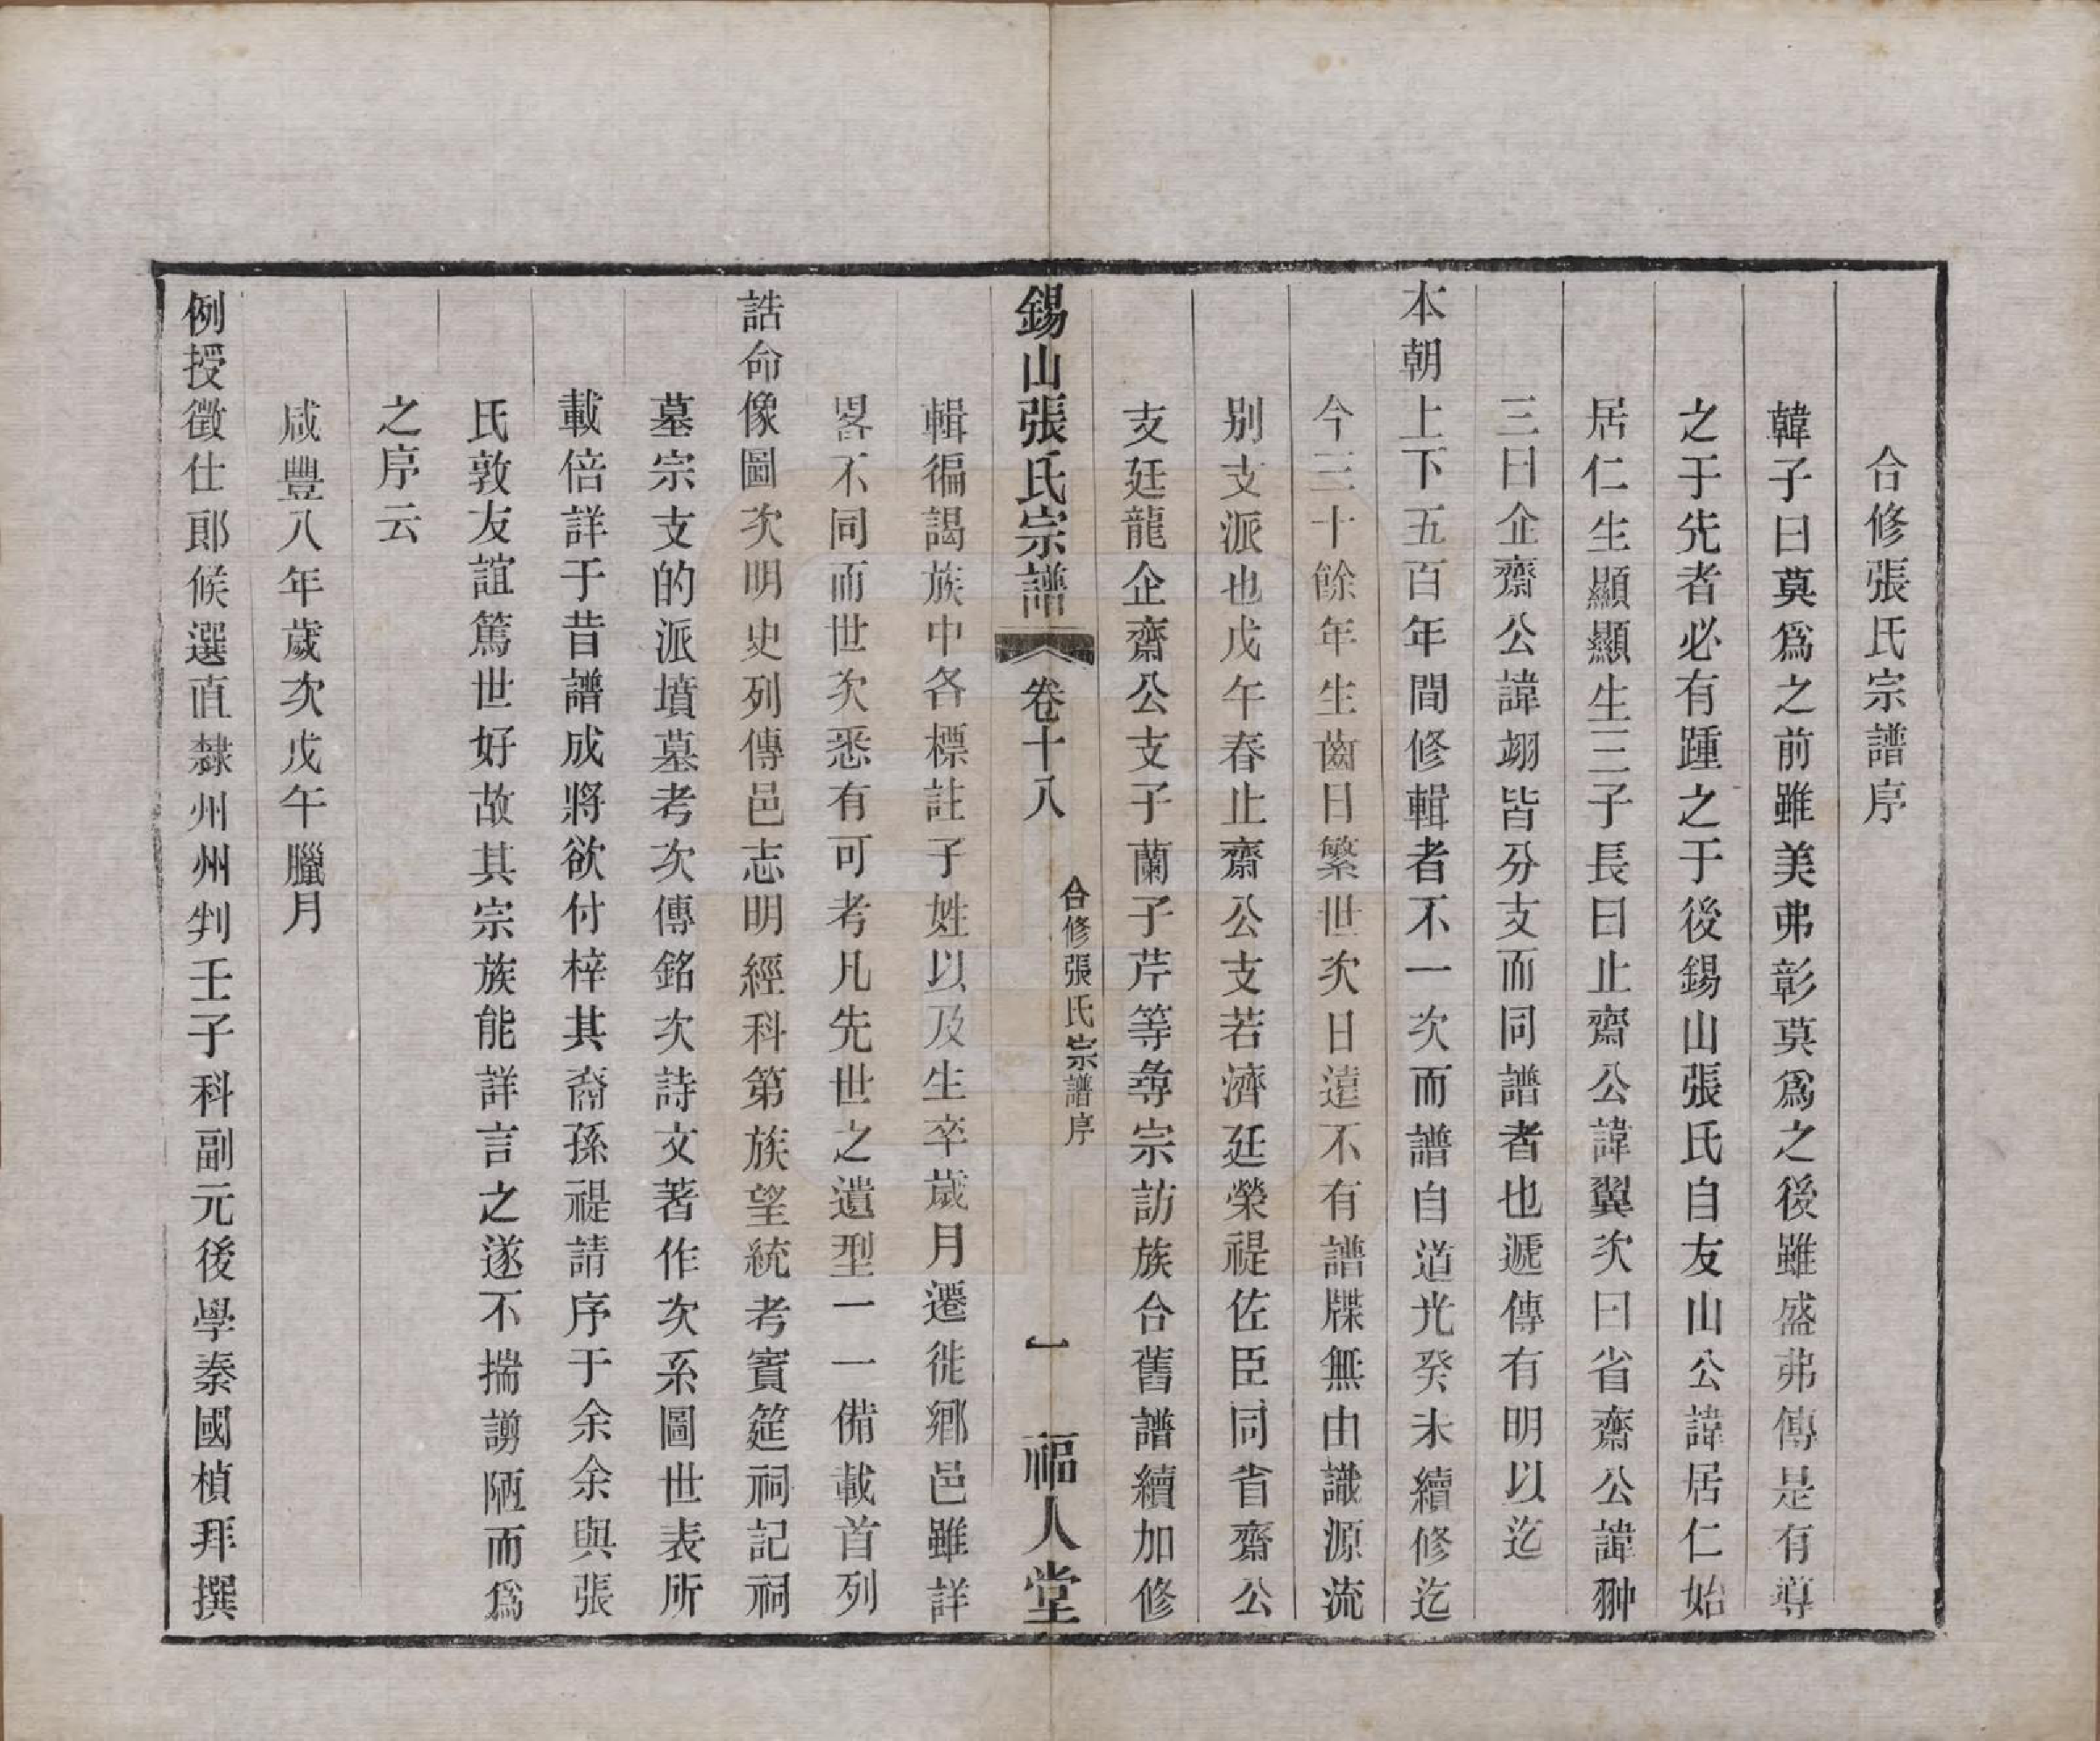 合修張氏宗譜序
韓子曰莫爲之前雖美弗彰莫爲之後雖盛弗傳是有導
之于先者必有踵之于後錫山張氏自友山公諱居仁始
居仁生顯顯生三子長曰止齋公諱翼次曰省齋公諱翀
三曰企齋公諱翊皆分支而同譜者也遞傳有明以迄
本朝上下五百年間修輯者不一次而譜自道光癸未續修迄
今三十餘年生齒日繁世次日遠不有譜牒無由識源流
別支派也戊午春止齋公支若濟廷榮禔佐臣同省齋公
支廷龍企齋公支子蘭子芹等尋宗訪族合舊譜續加修
錫山張氏宗譜 卷十八 合修張氏宗譜序 一 福人堂
輯徧謁族中各標註子姓以及生卒歲月遷徙鄉邑雖詳
畧不同而世次悉有可考凡先世之遺型一一備載首列
誥命像圖次明史列傳邑志明經科第族望統考賓筵祠記祠
墓宗支的派墳墓考次傳銘次詩文著作次系圖世表所
載倍詳于昔譜成將欲付梓其裔孫禔請序于余余與張
氏敦友誼篤世好故其宗族能詳言之遂不揣譾陋而爲
之序云
咸豐八年歲次戊午臘月
例授徵仕郎候選直隸州州判壬子科副元後學秦國楨拜撰